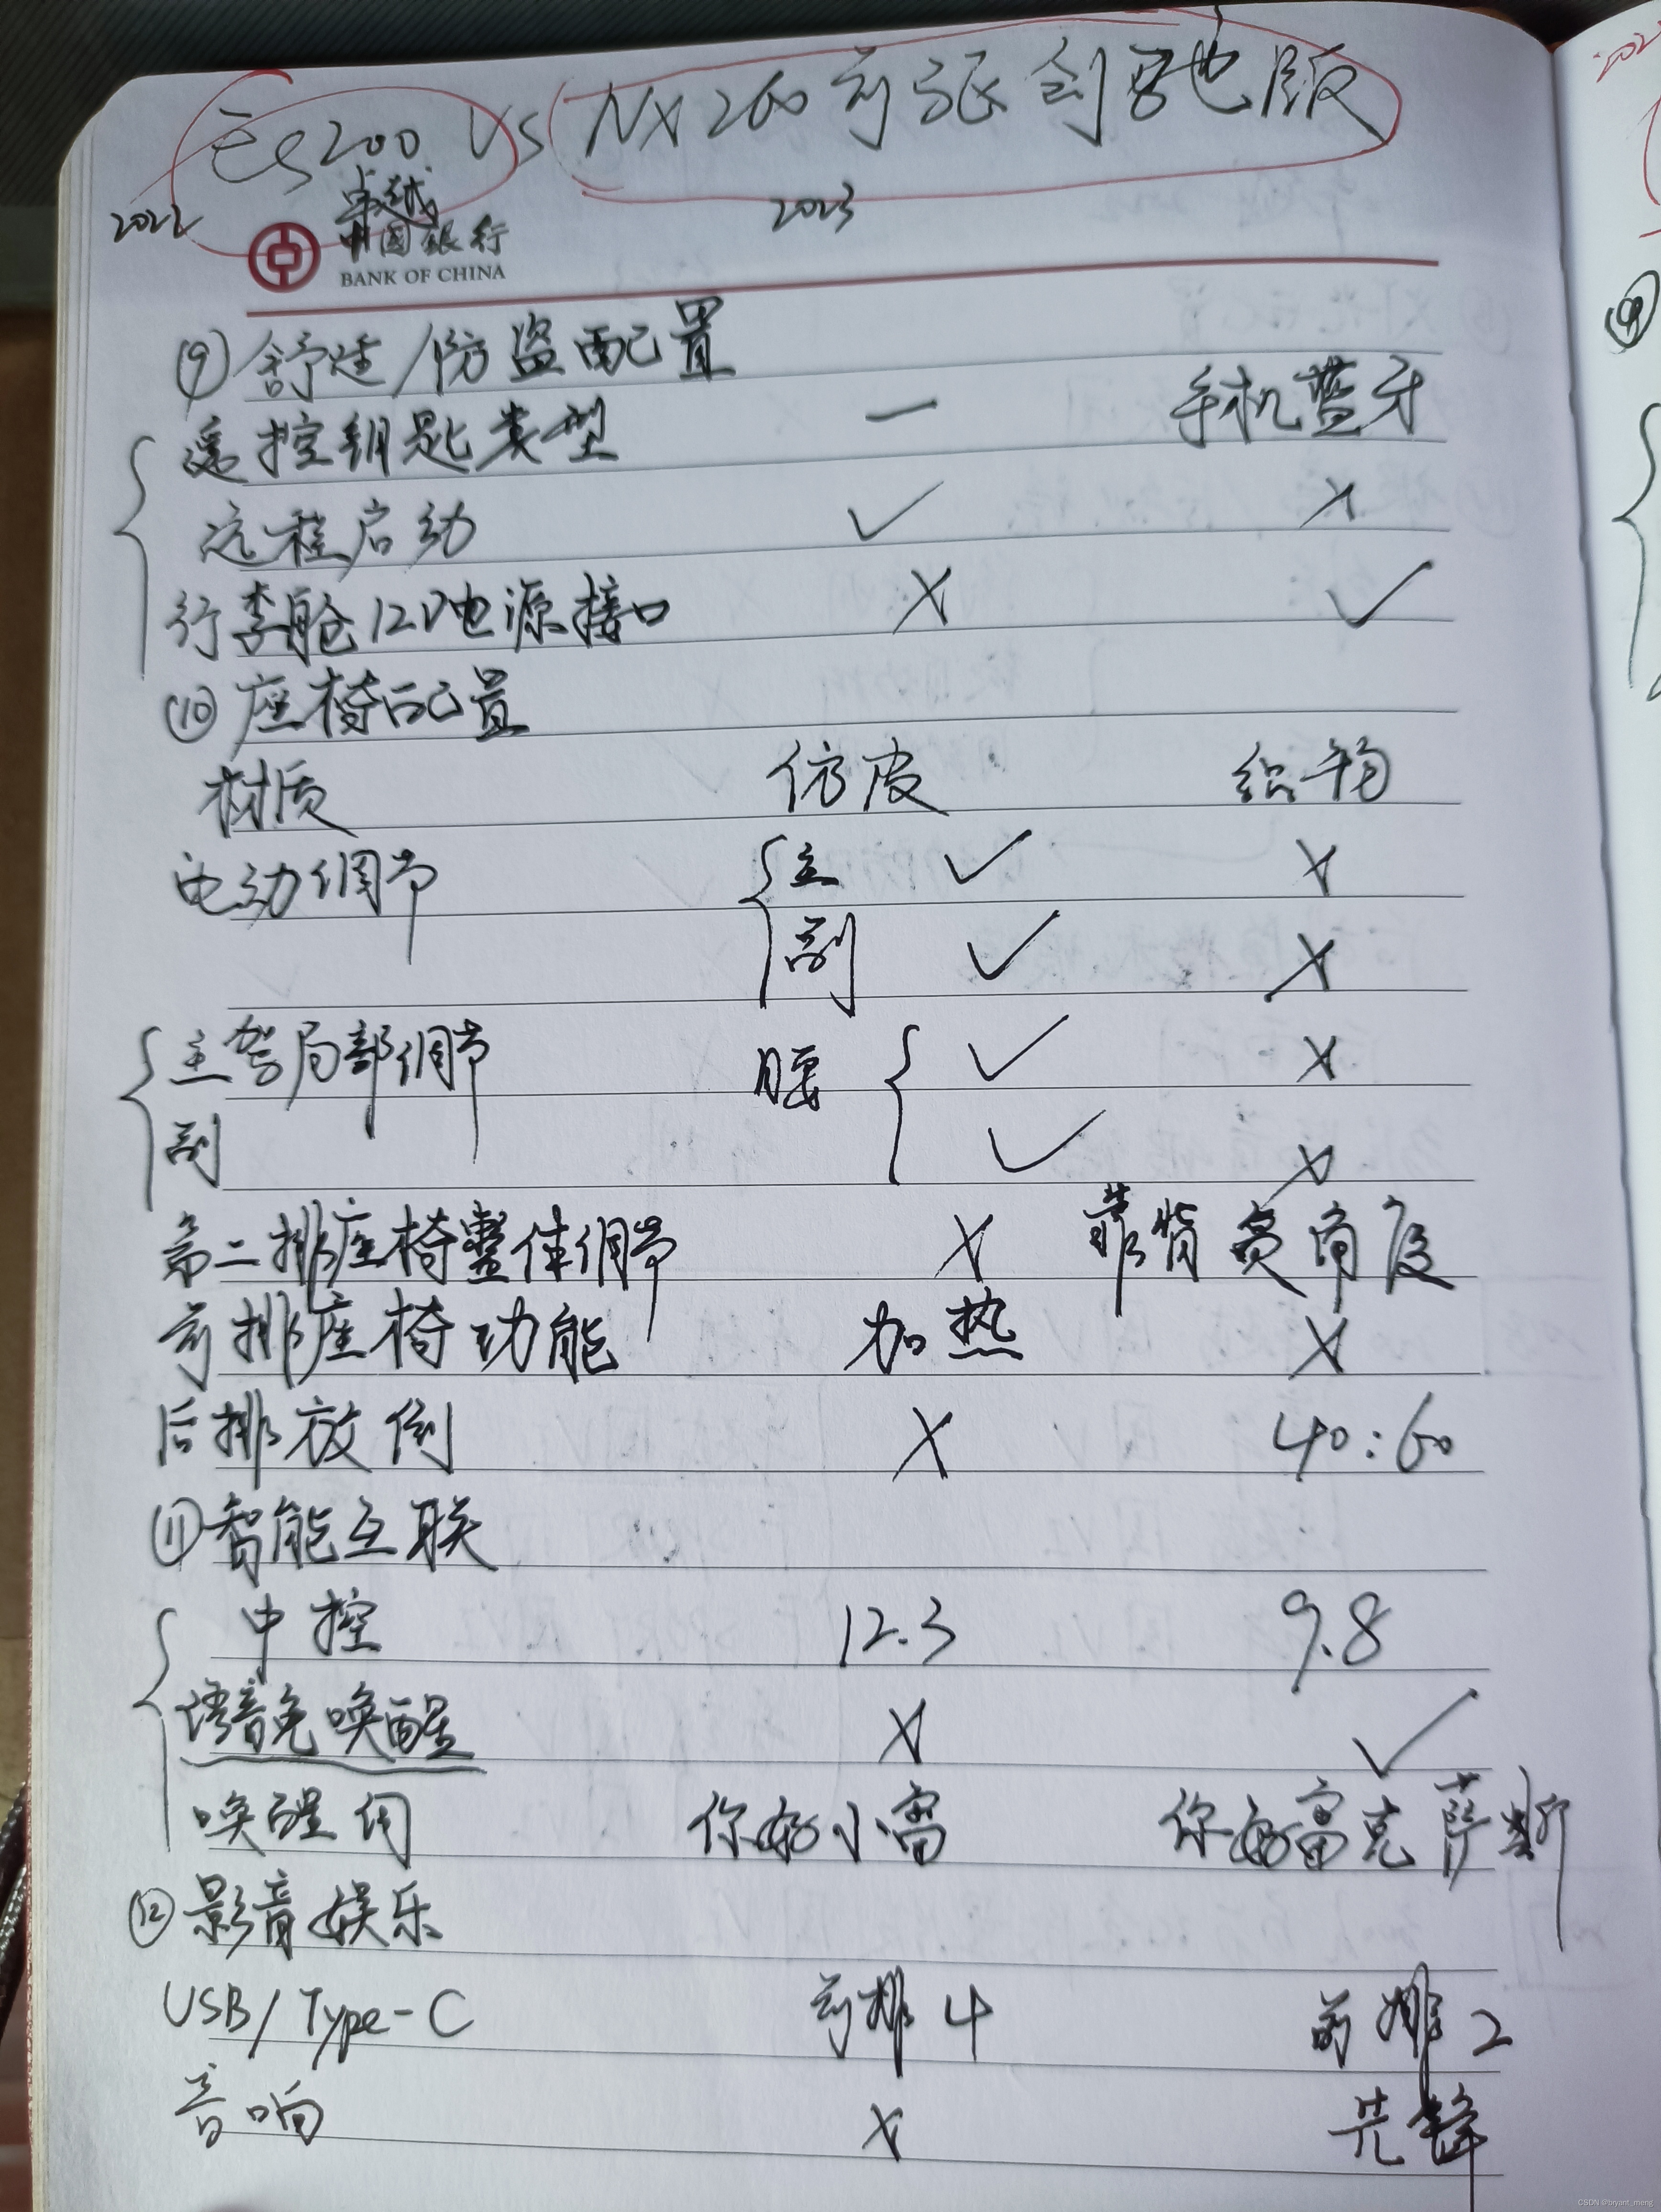 ES200 VS NX260前驱创驰版
2022 卓越 2023
中国银行
BANK OF CHINA
⑨舒适/防盗配置
遥控钥匙类型 — 手机蓝牙
远程启动 ✓ ×
行李舱12V电源接口 × ✓
⑩座椅配置
材质 仿皮 织物
电动调节 主 ✓ ×
副 ✓ ×
主驾局部调节 腰 ✓ ×
副 ✓ ×
第二排座椅整体调节 × 靠背 角度
前排座椅功能 加热 ×
后排放倒 × 40:60
⑪智能互联
中控 12.3 9.8
语音免唤醒 × ✓
唤醒词 你好小雷 你好雷克萨斯
⑫影音娱乐
USB/Type-C 前排4 前排2
音响 × 先锋
CSDN @bryant_meng